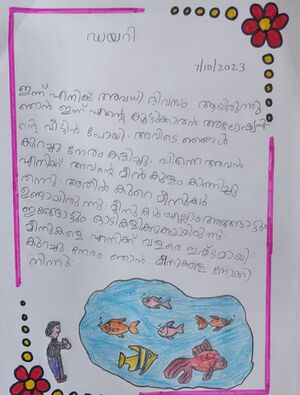 ഡയറി
7/10/2023
ഇന്ന് എനിക്ക് അവധി ദിവസം ആയിരുന്നു
ഞാൻ ഇന്ന് എന്റെ കൂട്ടുകാരൻ
ന്റെ വീട്ടിൽ പോയി. അവിടെ ഞങ്ങൾ
കുറച്ചു നേരം കളിച്ചു. പിന്നെ അവൻ
എനിക്ക് അവന്റെ മീൻ കുളം കാണിച്ചു
തന്നു അതിൽ കുറെ മീനുകൾ
ഉണ്ടായിരുന്നു. മീനുകൾ എല്ലാം അങ്ങോട്ടും
ഇങ്ങോട്ടും ഓടികളിക്കുകയായിരുന്നു.
മീനുകളെ എനിക്ക് വളരെ ഇഷ്ടമായി.
കുറച്ചു നേരം ഞാൻ മീനുകളെ നോക്കി
നിന്നു.